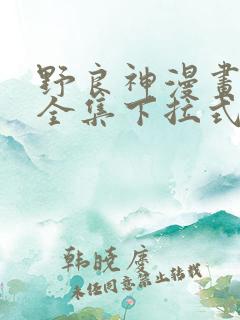 野良神漫畫
全集下拉式
韩晓度
未经同意禁止转载